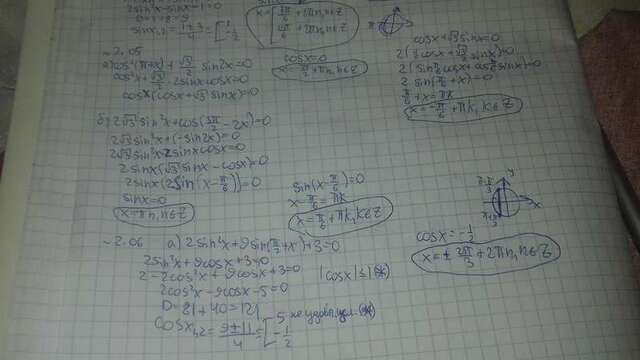 2sin²x-sinx-1=0
D=1+8=9
sinx₁,₂=1±3/4=[1 -1/2
x=[7π/6+2πn, n∈Z
~2.05
а) cos²(π+x)+√3/2 sin2x=0
cos²x+√3/2 · 2sinxcosx=0
cosx(cosx+√3 sinx)=0
cosx=0
x=π/2+πn, n∈Z
cosx+√3 sinx=0
2(1/2 cosx+√3/2 sinx)=0
2(sin π/6 cosx+cos π/6 sinx)=0
2 sin(π/6+x)=0
π/6+x=πk
x=-π/6+πk, k∈Z
б) 2√3 sin²x+cos(3π/2-2x)=0
2√3 sin²x+(-sin2x)=0
2√3 sin²x-2sinxcosx=0
2sinx(√3 sinx-cosx)=0
2sinx(2sin(x-π/6))=0
sinx=0
x=πn, n∈Z
sin(x-π/6)=0
x-π/6=πk
x=π/6+πk, k∈Z
~2.06 а) 2sin²x+9sin(π/2+x)+3=0
2sin²x+9cosx+3=0
2-2cos²x+9cosx+3=0
2cos²x-9cosx-5=0
|cosx|≤1(*)
D=81+40=121
cosx₁,₂=9±11/4=[5 не удовл. усл.(*) -1/2
cosx=-1/2
x=±2π/3+2πn, n∈Z